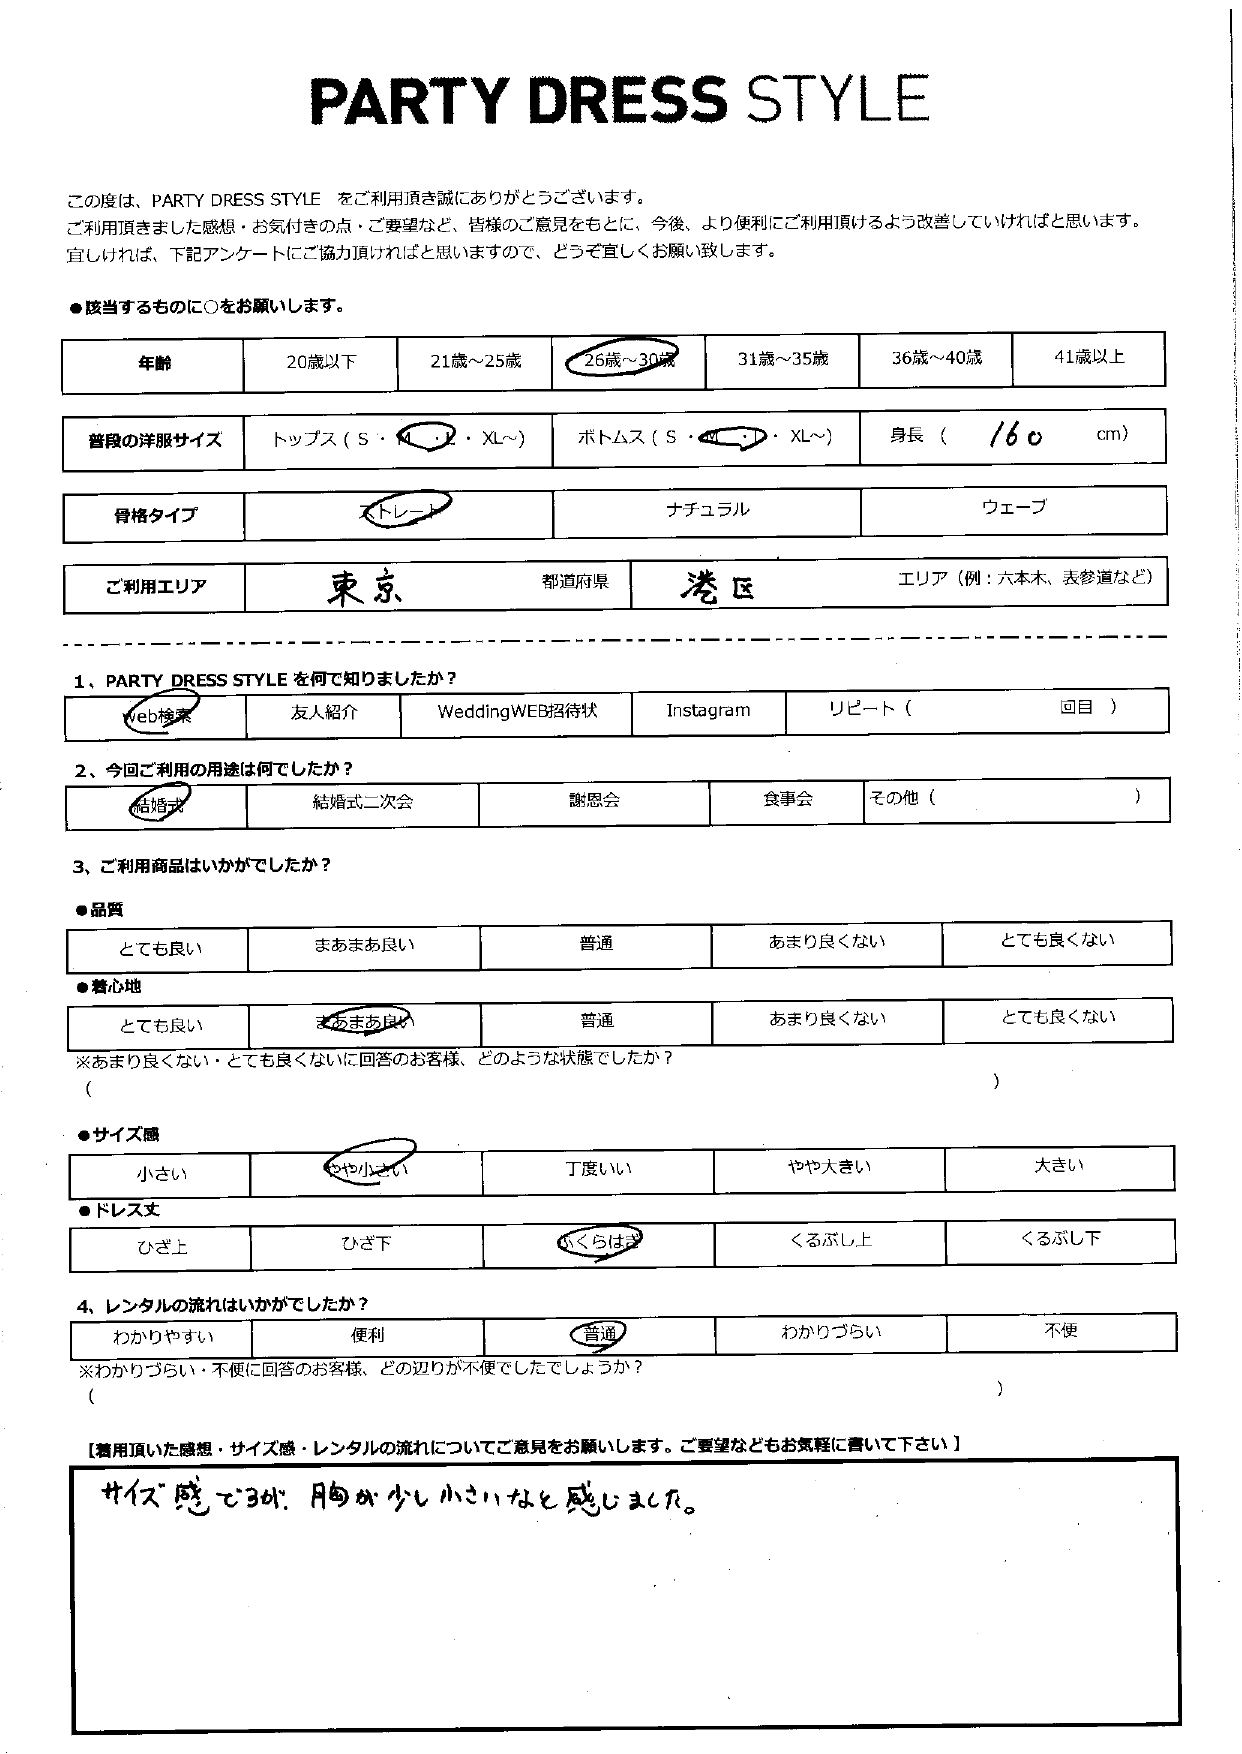 PARTY DRESS STYLE
この度は、PARTY DRESS STYLE をご利用頂き誠にありがとうございます。
ご利用頂きました感想・お気付きの点・ご要望など、皆様のご意見をもとに、今後、より便利にご利用頂けるよう改善していければと思います。
宜しければ、下記アンケートにご協力頂ければと思いますので、どうぞ宜しくお願い致します。
●該当するものに○をお願いします。
年齢 20歳以下 21歳～25歳 26歳～30歳 31歳～35歳 36歳～40歳 41歳以上
普段の洋服サイズ トップス ( S ・ M ・ L ・ XL～) ボトムス ( S ・ M ・ L ・ XL～) 身長 ( 160 cm)
骨格タイプ ストレート ナチュラル ウェーブ
ご利用エリア 東京 都道府県 港区 エリア（例：六本木、表参道など）
1、PARTY DRESS STYLE を何で知りましたか？
web検索 友人紹介 WeddingWEB招待状 Instagram リピート ( 回目 )
2、今回ご利用の用途は何でしたか？
結婚式 結婚式二次会 謝恩会 食事会 その他 ( )
3、ご利用商品はいかがでしたか？
●品質
とても良い まあまあ良い 普通 あまり良くない とても良くない
●着心地
とても良い まあまあ良い 普通 あまり良くない とても良くない
※あまり良くない・とても良くないに回答のお客様、どのような状態でしたか？
( )
●サイズ感
小さい やや小さい 丁度いい やや大きい 大きい
●ドレス丈
ひざ上 ひざ下 ふくらはぎ くるぶし上 くるぶし下
4、レンタルの流れはいかがでしたか？
わかりやすい 便利 普通 わかりづらい 不便
※わかりづらい・不便に回答のお客様、どの辺りが不便でしたでしょうか？
( )
【着用頂いた感想・サイズ感・レンタルの流れについてご意見をお願いします。ご要望などもお気軽に書いて下さい】
サイズ感ですが、胸が少し小さいなと感じました。